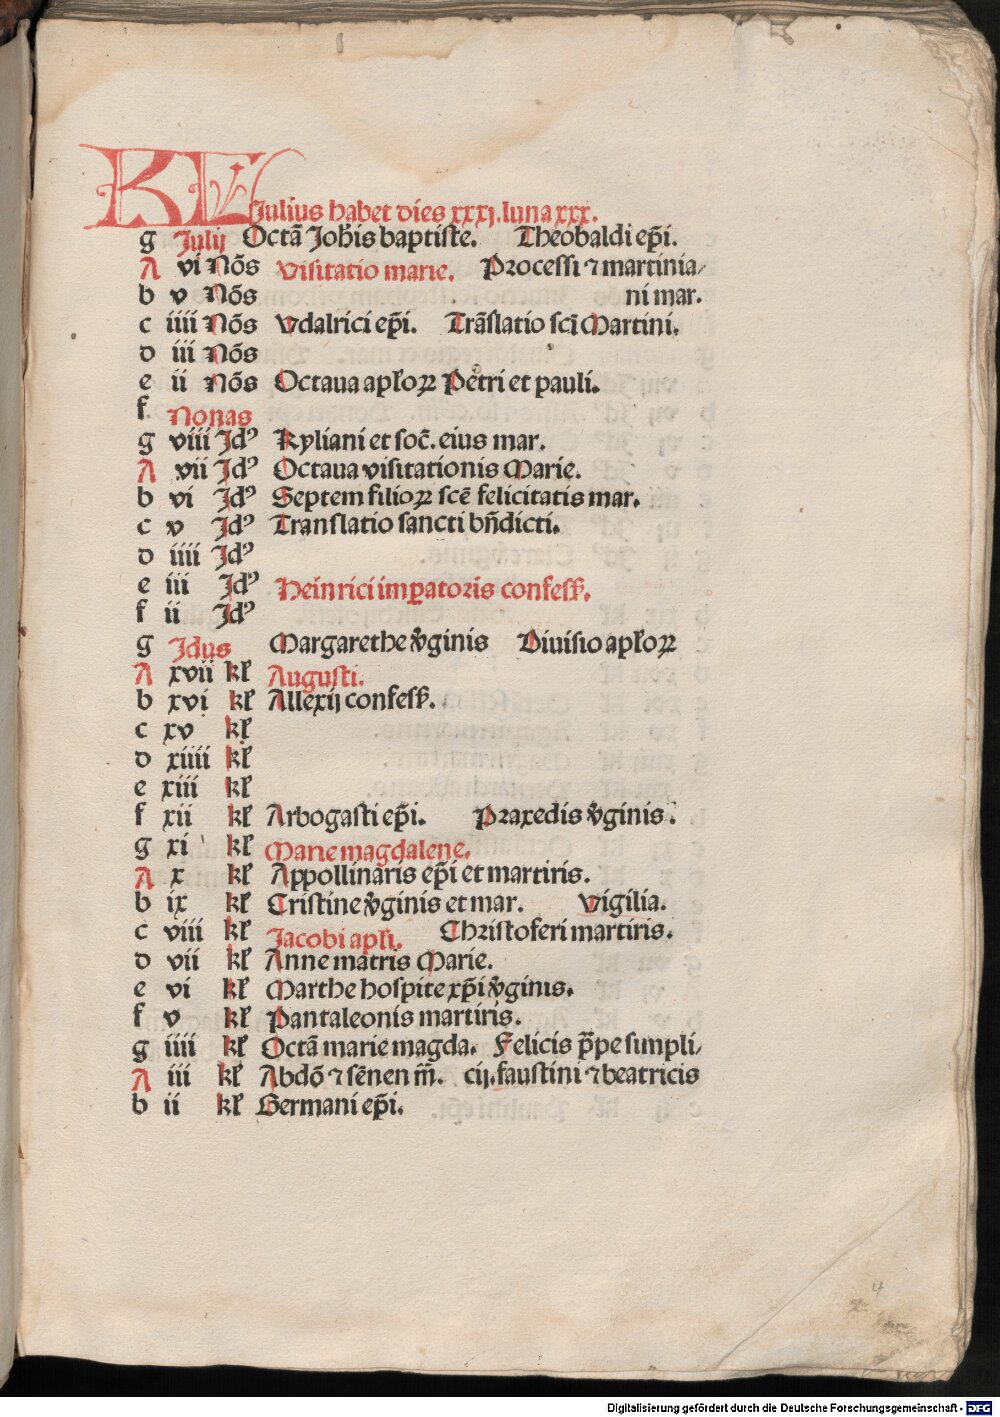 KL Julius habet dies xxxj. luna xxx.
g Julij Octā Joh̄is baptiste. Theobaldi ep̄i.
A vi Nōs Visitatio marie. Processi ⁊ martinia/
b v Nōs ni mar.
c iiii Nōs Vdalrici ep̄i. Trāslatio sci̅ Martini.
d iii Nōs
e ii Nōs Octaua apl̄oꝝ Petri et pauli.
f Nonas
g viii Jdꝰ Kyliani et soc̄. eius mar.
A vii Jdꝰ Octaua visitationis Marie.
b vi Jdꝰ Septem filioꝝ scē felicitatis mar.
c v Jdꝰ Translatio sancti bn̄dicti.
d iiii Jdꝰ
e iii Jdꝰ Heinrici imꝑatoris confess̄.
f ii Jdꝰ
g Jdus Margarethe v̄ginis Diuisio apl̄oꝝ
A xvii kl̄ Augusti.
b xvi kl̄ Allexij confess̄.
c xv kl̄
d xiiii kl̄
e xiii kl̄
f xii kl̄ Arbogasti ep̄i. Praxedis v̄ginis.
g xi kl̄ Marie magdalene.
A x kl̄ Appollinaris ep̄i et martiris.
b ix kl̄ Cristine v̄ginis et mar. Vigilia.
c viii kl̄ Jacobi apl̄i. Christoferi martiris.
d vii kl̄ Anne matris Marie.
e vi kl̄ Marthe hospite xp̄i v̄ginis.
f v kl̄ Pantaleonis martiris.
g iiii kl̄ Octā marie magda. Felicis p̄pe simpli/
A iii kl̄ Abdō ⁊ sēnen m̄. cij. faustini ⁊ beatricis
b ii kl̄ Germani ep̄i.
4
Digitalisierung gefördert durch die Deutsche Forschungsgemeinschaft - DFG